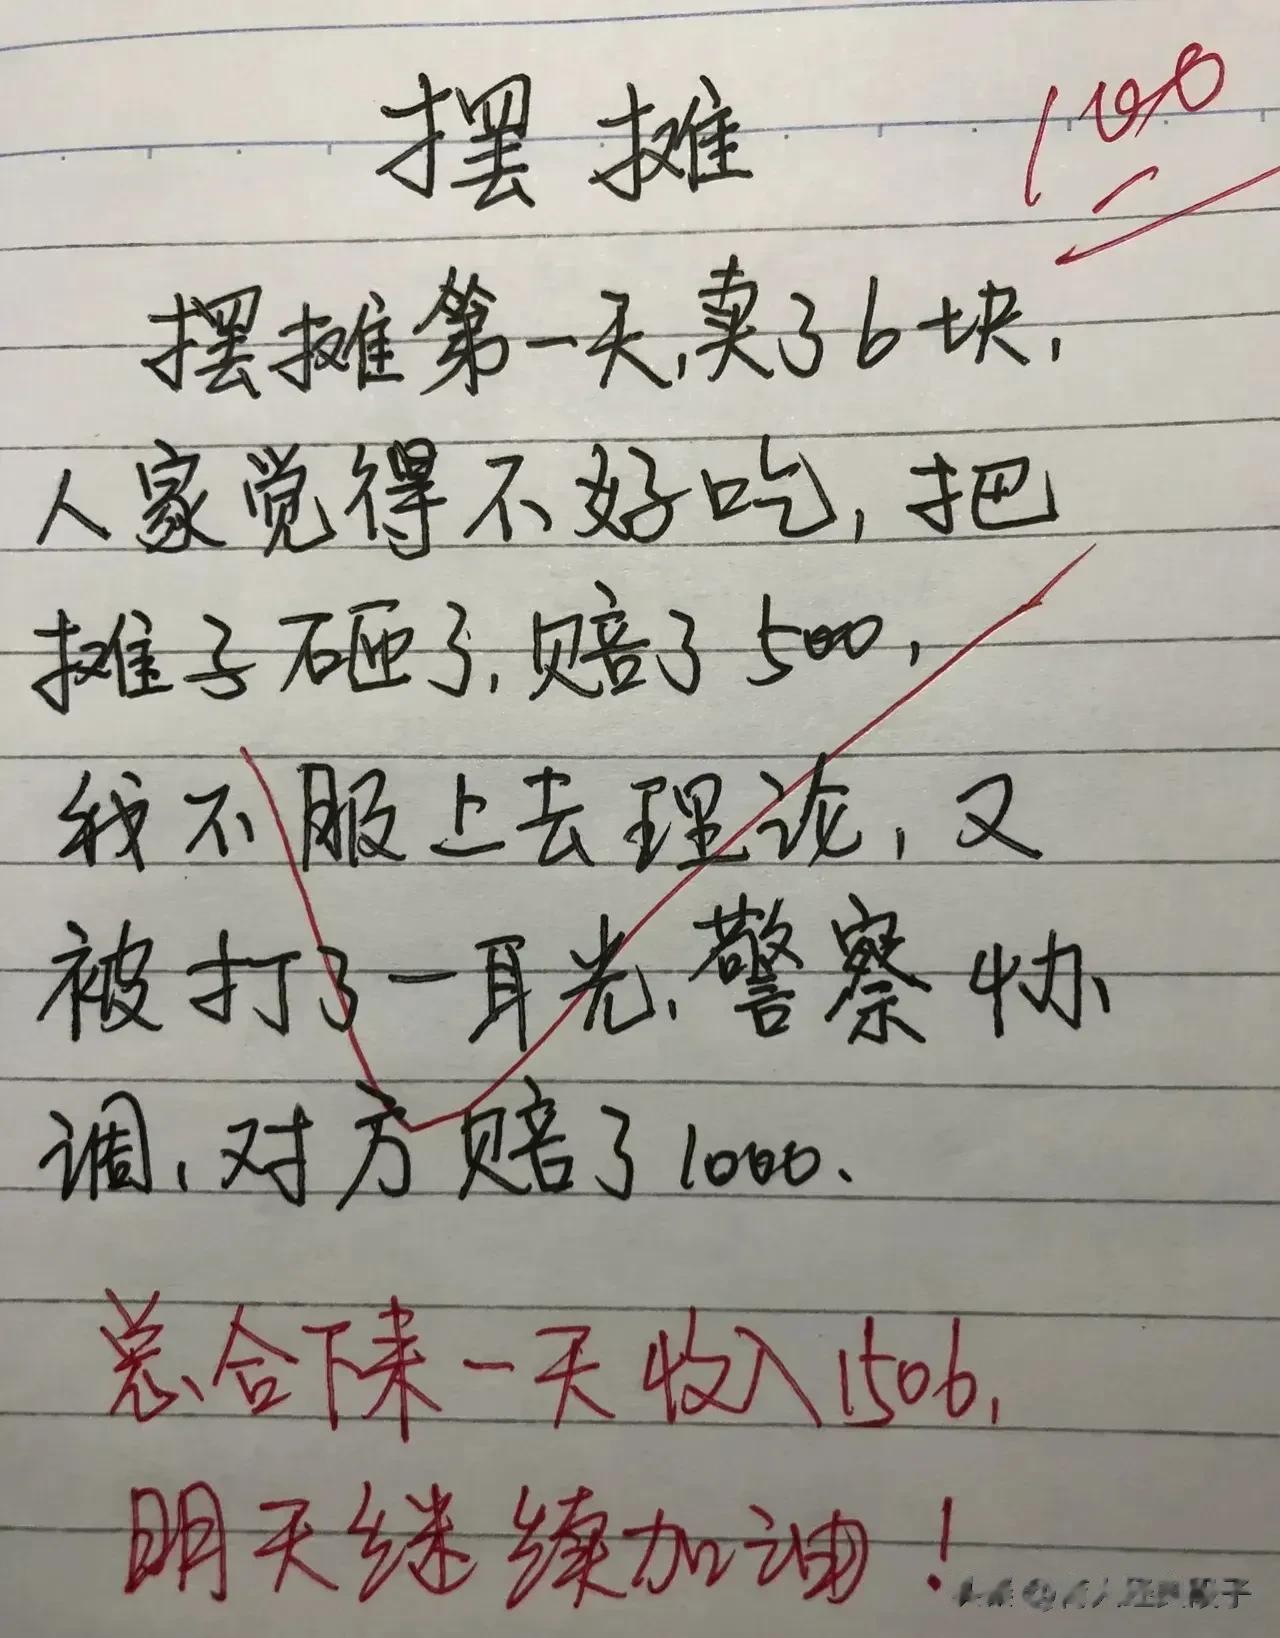 摆摊
100
摆摊第一天,卖了6块,
人家觉得不好吃,把
摊子砸了,赔了500,
我不服上去理论,又
被打了一耳光、警察协
调,对方赔了1000、
总合下来一天收入1506,
明天继续加油!
头条@